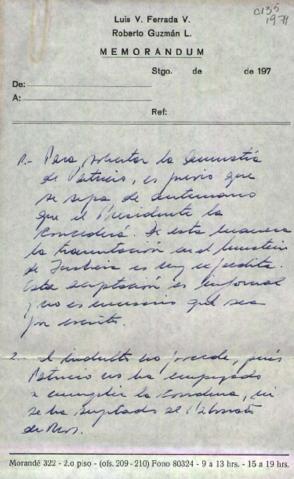 C135
197
Luis V. Ferrada V.
Roberto Guzmán L.
MEMORANDUM
Stgo. de de 197
De:
A:
Ref:
1.- Para solicitar la amnistía
de Patricio, es previo que
se sepa de antemano
que el Presidente la
concederá. De esta manera
la tramitación en el Ministerio
de Justicia es muy expedita.
Esta aceptación es informal
y no es necesario que sea
por escrito.
2.- El indulto no procede, pues
Patricio no ha empezado
a cumplir la condena, ni
se ha al Patronato
de Reos.
Morandé 322 - 2.o piso - (ofs. 209 - 210) Fono 80324 - 9 a 13 hrs. - 15 a 19 hrs.